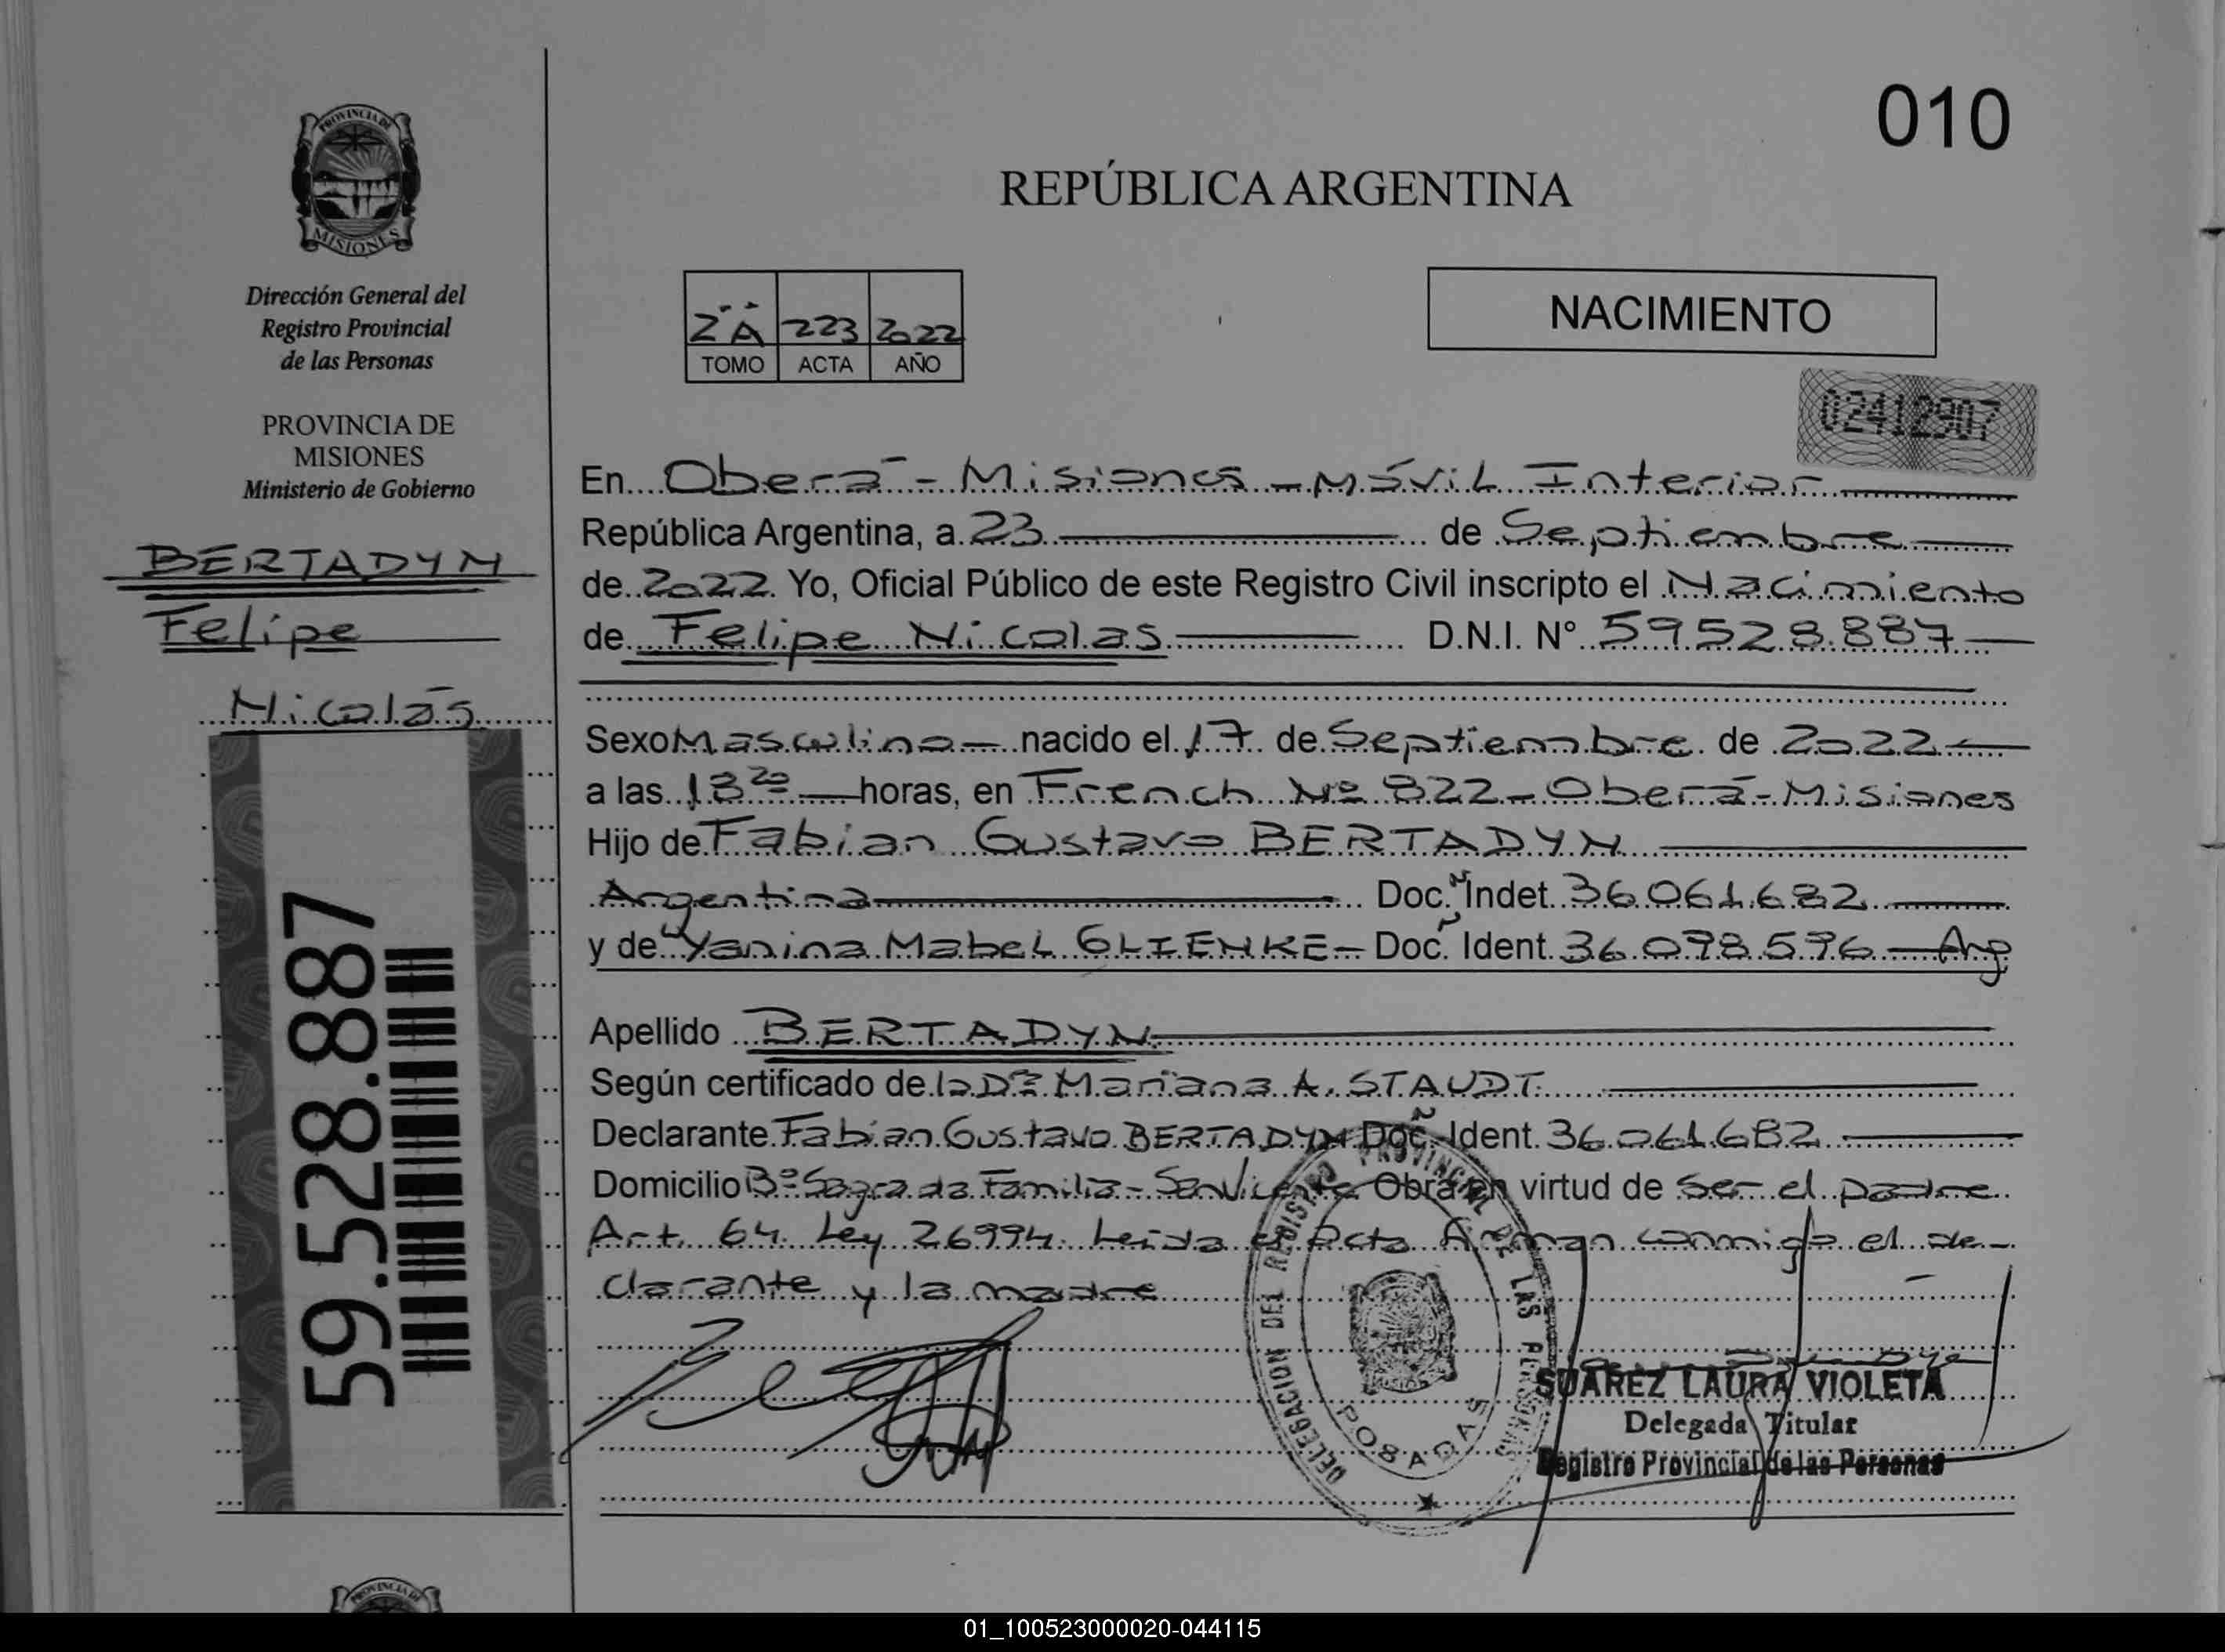 010
REPÚBLICA ARGENTINA
PROVINCIA DE
MISIONES
Dirección General del
Registro Provincial
de las Personas
PROVINCIA DE
MISIONES
Ministerio de Gobierno
BERTADYN
Felipe
Nicolás
59.528.887
2º A 223 2022
TOMO ACTA AÑO
NACIMIENTO
02412907
En Oberá - Misiones - Móvil Interior
República Argentina, a 23 de Septiembre
de 2022. Yo, Oficial Público de este Registro Civil inscripto el Nacimiento
de Felipe Nicolas D.N.I. N° 59528.887
Sexo Masculino nacido el 17 de Septiembre de 2022
a las 13 20 horas, en French Nº 822 - Oberá - Misiones
Hijo de Fabian Gustavo BERTADYN
Argentina Doc. Indet. 36.061.682
y de Yanina Mabel GLIENKE - Doc. Ident. 36.098.596 Arg
Apellido BERTADYN
Según certificado de la Dra Mariana A. STAUDT
Declarante Fabian Gustavo BERTADYN Doc. Ident. 36.061.682
Domicilio Bº Sagrada Familia - San Vicente Obra en virtud de ser el padre
Art. 64 Ley 26994. Leida el Acta Firman conmigo el de-
clarante y la madre
DELEGACION DEL REGISTRO PROVINCIAL DE LAS PERSONAS
POSADAS
SUAREZ LAURA VIOLETA
Delegada Titular
Registro Provincial de las Personas
PROVINCIA DE
01_100523000020-044115